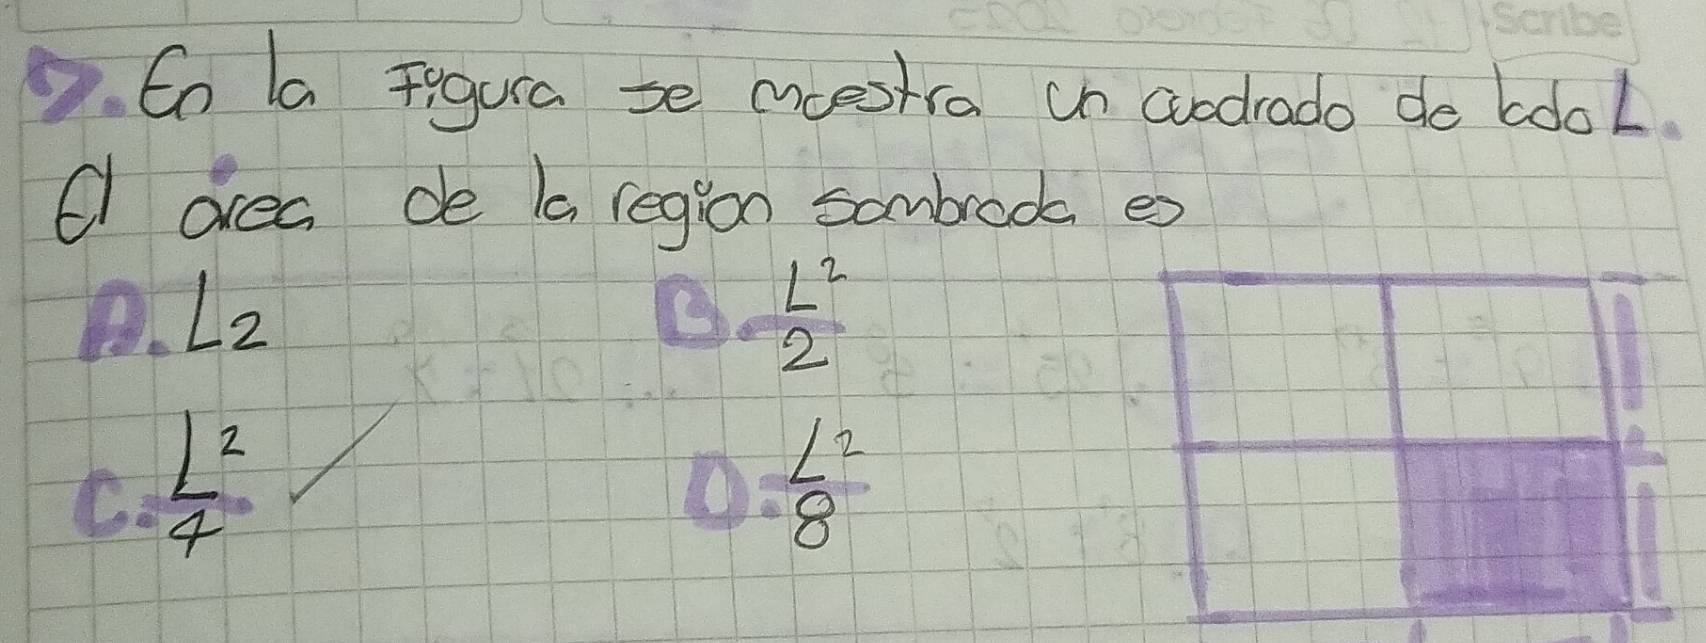 Scribe
7. En la figura se muestra un cuadrado de lado L.
El área de la region sombreada es
A. L2
B. L²/2
C. L²/4 ✓
D. L²/8